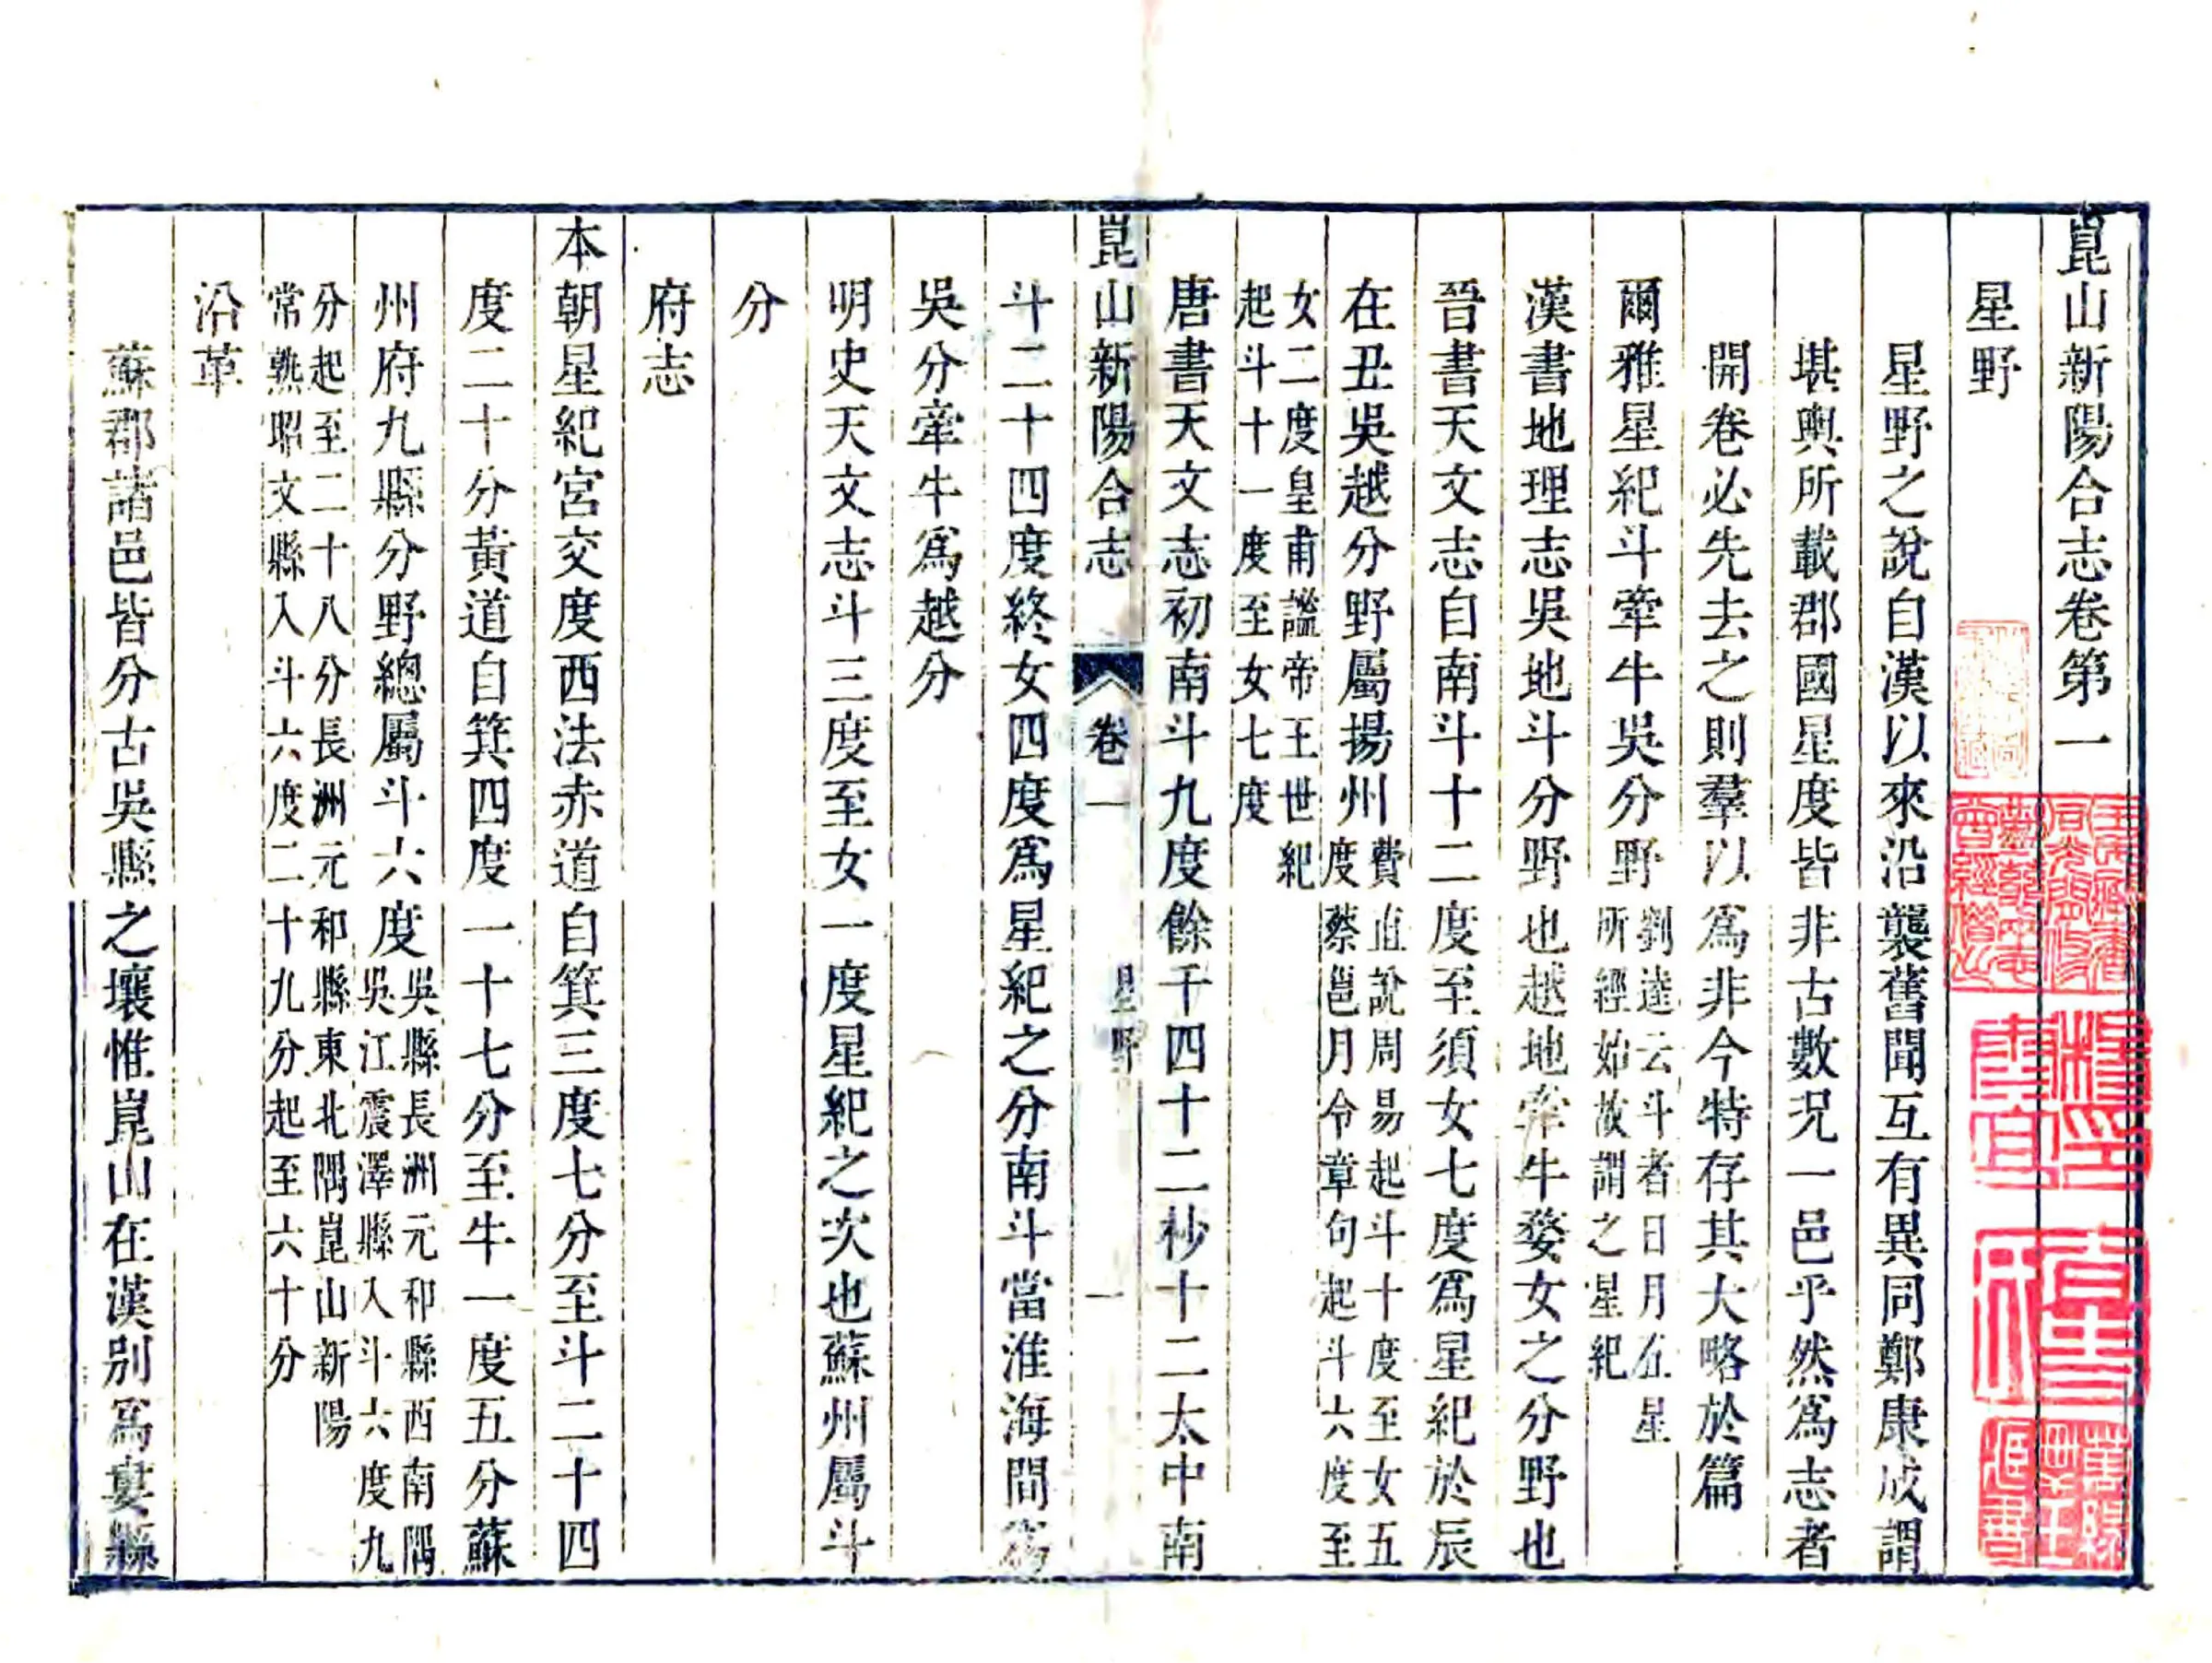 崑山新陽合志卷第一
星野
星野之說自漢以來沿襲舊聞互有異同鄭康成謂
堪輿所載郡國星度皆非古數况一邑乎然爲志者
開卷必先去之則羣以爲非今特存其大略於篇
爾雅星紀斗牽牛吳分野劉逵云斗者日月五星所經始故謂之星紀
漢書地理志吳地斗分野也越地牽牛婺女之分野也
晉書天文志自南斗十二度至須女七度爲星紀於辰
在丑吳越分野屬揚州費直說周易起斗十度至女五度蔡邕月令章句起斗六度至
女二度皇甫謐帝王世紀起斗十一度至女七度
唐書天文志初南斗九度餘千四十二秒十二太中南
崑山新陽合志 卷一 星野 一
斗二十四度終女四度爲星紀之分南斗當淮海間爲
吳分牽牛爲越分
明史天文志斗三度至女一度星紀之次也蘇州屬斗
分
府志
本朝星紀宮交度西法赤道自箕三度七分至斗二十四
度二十分黃道自箕四度一十七分至牛一度五分蘇
州府九縣分野總屬斗六度吳縣長洲元和縣西南隅吳江震澤縣入斗六度九
分起至二十八分長洲元和縣東北隅崑山新陽常熟昭文縣入斗六度二十九分起至六十分
沿革
蘇郡諸邑皆分古吳縣之壤惟崑山在漢別爲婁縣